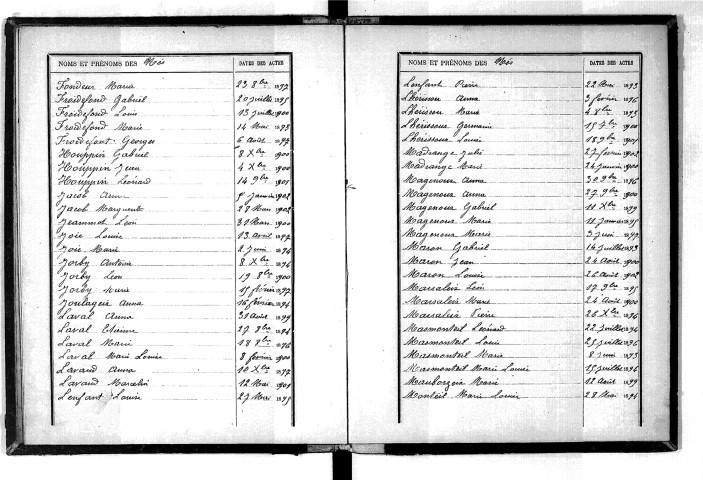 NOMS ET PRÉNOMS DES Nés DATES DES ACTES
Fondeur Maria 23 8bre 1897
Froidefond Gabriel 20 juillet 1895
Froidefond Louis 13 juillet 1900
Froidefond Marie 14 Mai 1898
Froidefont Georges 6 Août 1897
Houppin Gabriel 8 Xbre 1900
Houppin Jean 4 Xbre 1900
Houppin Léonard 14 9bre 1901
Jacob Anna Janvier 1902
Jacob Marguerite 28 Mars 1902
Jeammot Léon 31 Mars 1900
Joie Louise 13 Avril 1897
Joie Marie 2 Juin 1896
Jorby Antoine 8 Xbre 1896
Jorby Léon 19 8bre 1900
Jorby Marie 15 février 1897
Joulageix Anna 16 février 1894
Laval Anna 31 Août 1899
Laval Etienne 27 8bre 1894
Laval Marie 18 8bre 1896
Laval Marie Louise 8 février 1900
Lavaud Anna 10 Xbre 1897
Lavaud Marcelin 12 Mai 1901
Lenfant Louise 27 Mars 1895
NOMS ET PRÉNOMS DES Nés DATES DES ACTES
Lenfant Pierre 22 Mai 1893
Lhérisson Anna 3 février 1896
Lhérisson Marie 4 8bre 1893
Lhérissoux Germaine 15 7bre 1900
Lhérissoux Louise 18 9bre 1901
Madrange Julie 27 février 1902
Madrange Marie 24 Janvier 1900
Magenoux Anna 30 9bre 1896
Magenoux Anna 27 9bre 1900
Magenoux Gabriel 11 Xbre 1899
Magenoux Marie 11 Janvier 1895
Magenoux Marie 3 Juin 1897
Maron Gabriel 14 juillet 1893
Maron Jean 24 Août 1900
Maron Louise 26 Août 1902
Marsaleix Léon 17 9bre 1895
Marsaleix Marie 24 Août 1900
Marsaleix Pierre 26 Xbre 1896
Masmonteil Léonard 22 juillet 1894
Masmonteil Louis 25 juillet 1896
Masmonteil Marie 8 Juin 1893
Masmonteil Marie Louise 15 juillet 1896
Mauborgeix Marie 12 Août 1899
Monteil Marie Louise 28 Mai 1894